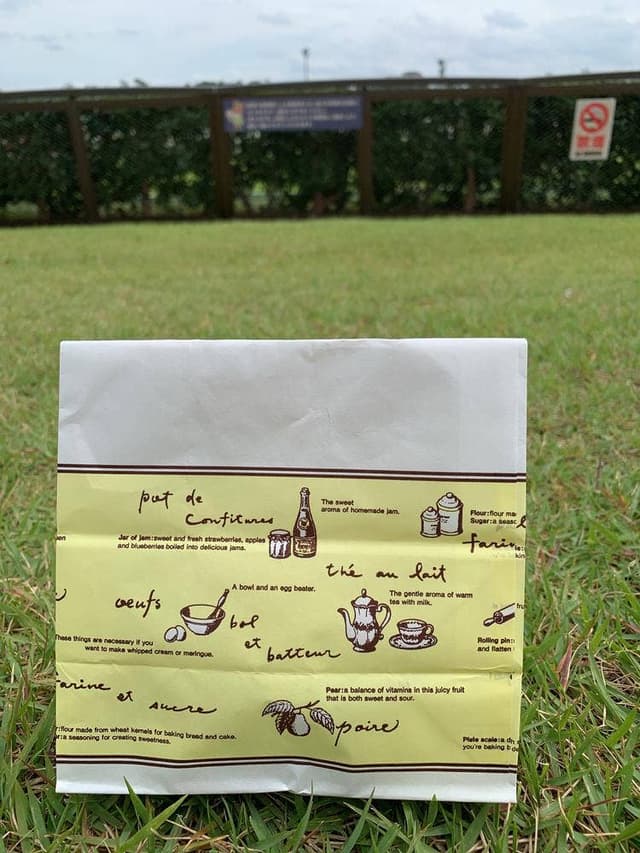 禁煙
put de
Confitures
The sweet
aroma of homemade jam.
Flour:flour ma
Sugar:a seaso
Jar of jam:sweet and fresh strawberries, apples
and blueberries boiled into delicious jams.
farin
thé au lait
A bowl and an egg beater.
The gentle aroma of warm
tea with milk.
oeufs
bol
et
batteur
These things are necessary if you
want to make whipped cream or meringue.
Rolling pin:
and flatten
farine
et
sucre
Pear:a balance of vitamins in this juicy fruit
that is both sweet and sour.
poire
r:flour made from wheat kernels for baking bread and cake.
r:a seasoning for creating sweetness.
Plate scale:a di
you're baking b